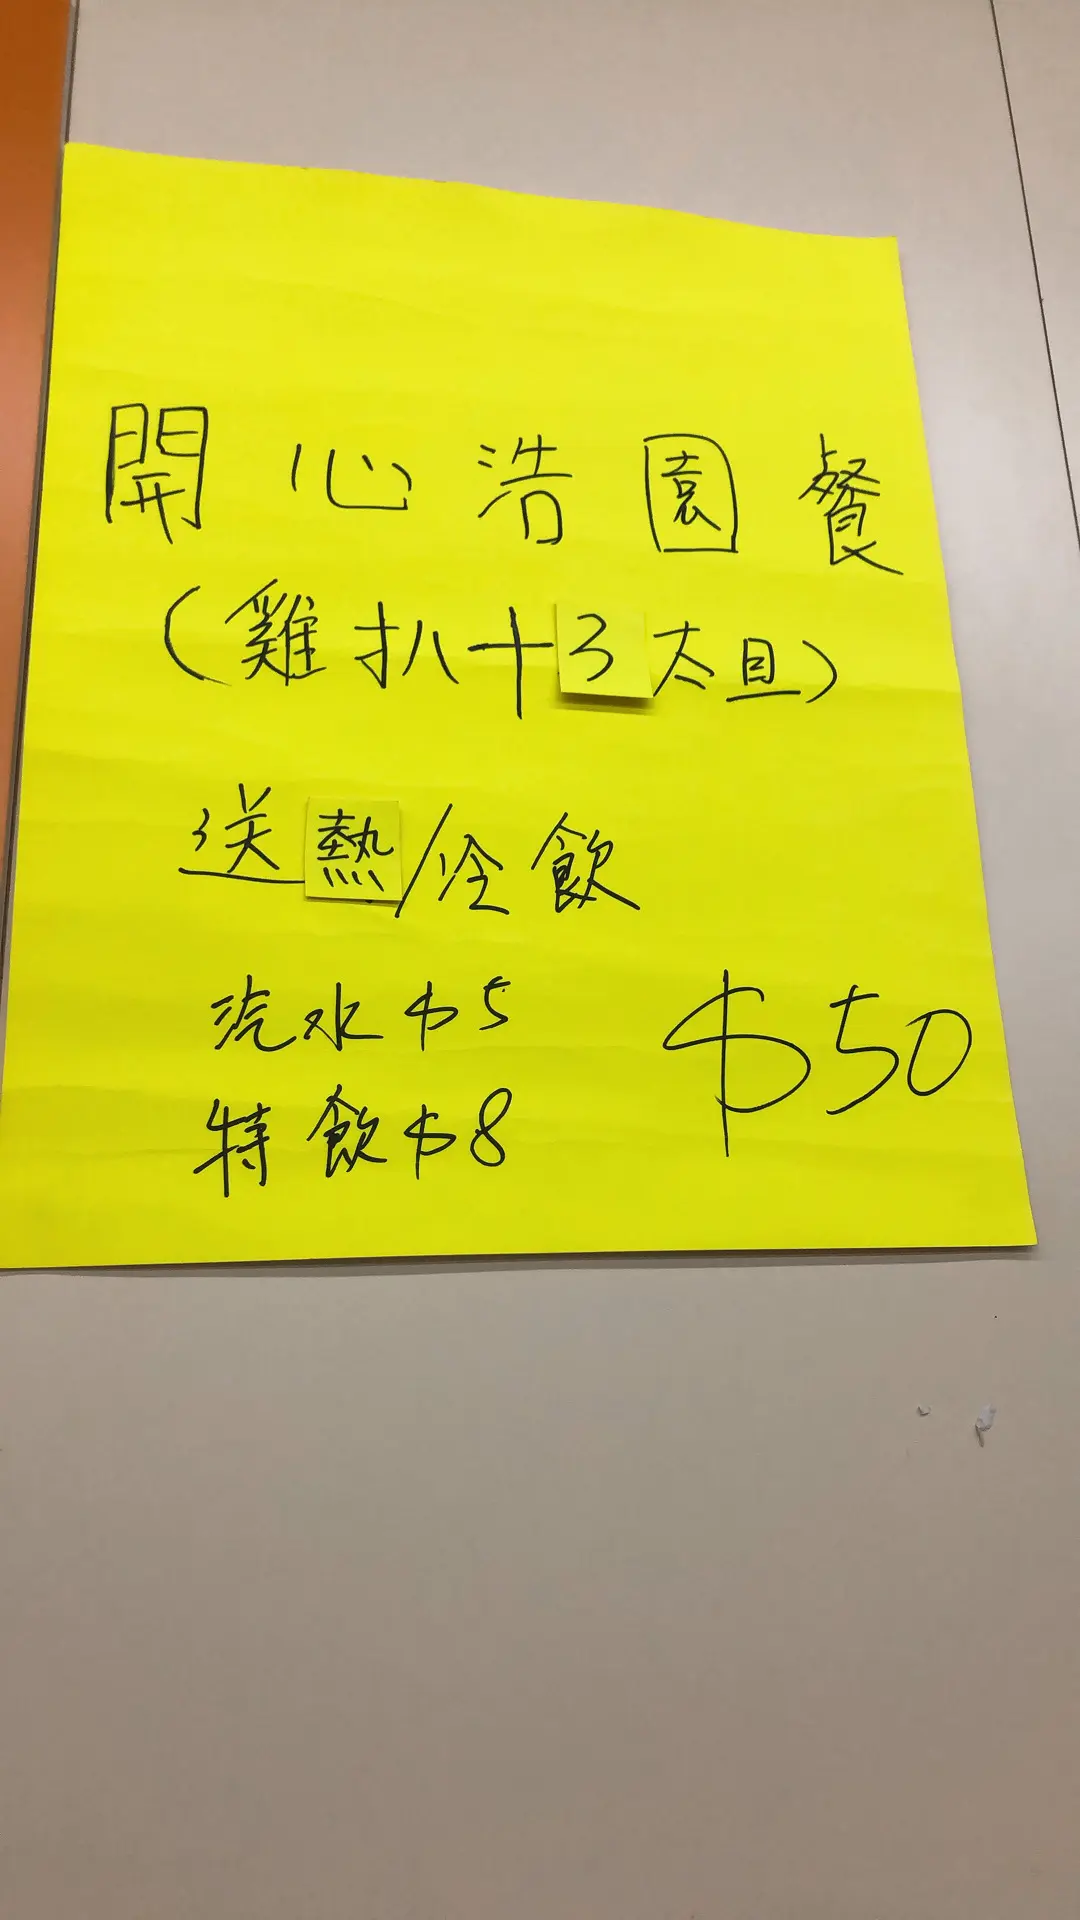 開心浩園餐
(雞扒十3太旦)
送熱/冷飲
汽水$5
特飲$8
$50